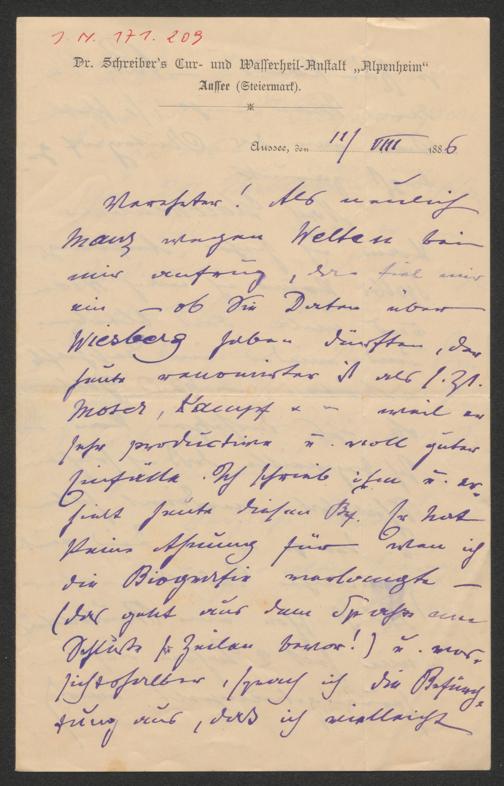 J. N. 171.209
Dr. Schreiber's Cur- und Wasserheil-Anstalt „Alpenheim“
Aussee (Steiermark).
Aussee, den 11/VIII 1886
Verehrter! Als neulich
Manz wegen Welten bei
mir anfrug, da fiel mir
ein – ob Sie Daten über
Wiesberg haben dürften, der
heute renomirter ist als s. Zt.
Moser, Kampf – weil er
sehr productive u. voll guter
Einfälle. Ich schrieb ihm u. er-
hielt heute diesen Bf. Er hat
keine Ahnung für wen ich
die Biografie verlangte –
(das geht aus dem
Schluße Zeilen hervor!) u. vor-
sichtshalber, sprach ich die Befürch-
tung aus, daß ich vielleicht